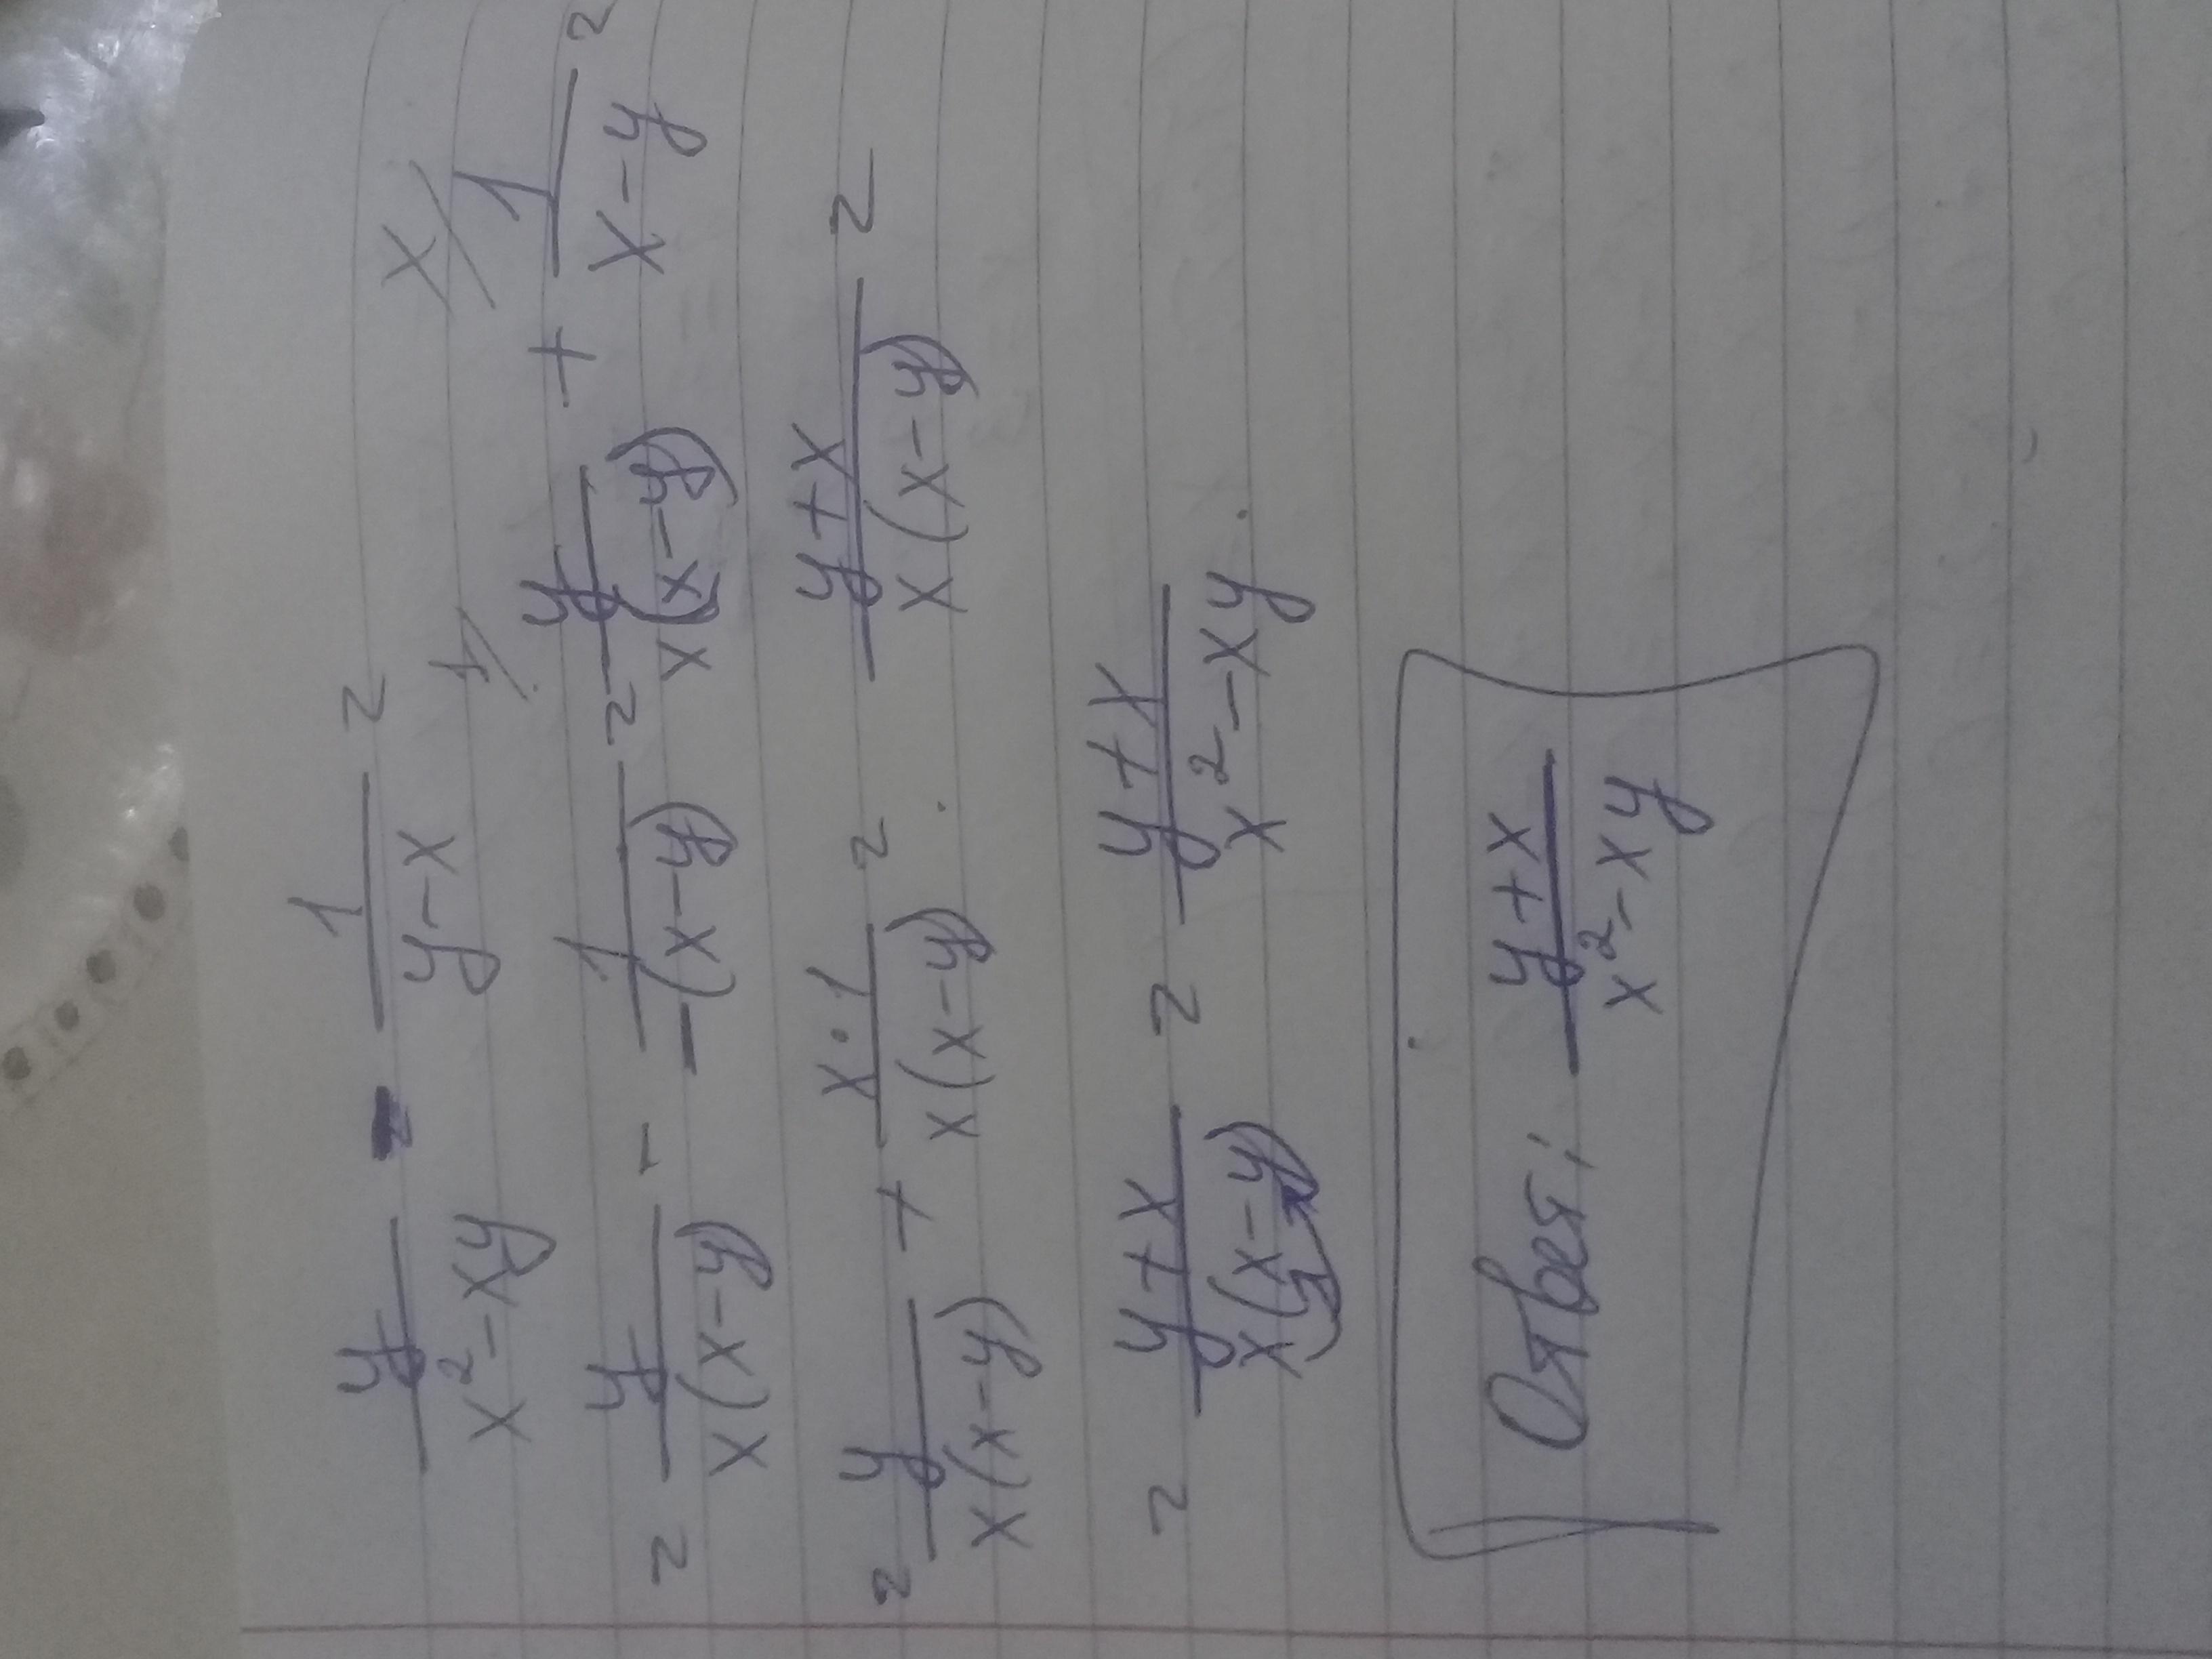 y/(x²-xy) - 1/(y-x) =
= y/(x(x-y)) - 1/(-(x-y)) = 1/ y/(x(x-y)) + x/ 1/(x-y) =
= y/(x(x-y)) + x·1/(x(x-y)) = y+x/(x(x-y)) =
= y+x/(x(x-y)) = y+x/(x²-xy)
Ответ: y+x/(x²-xy)